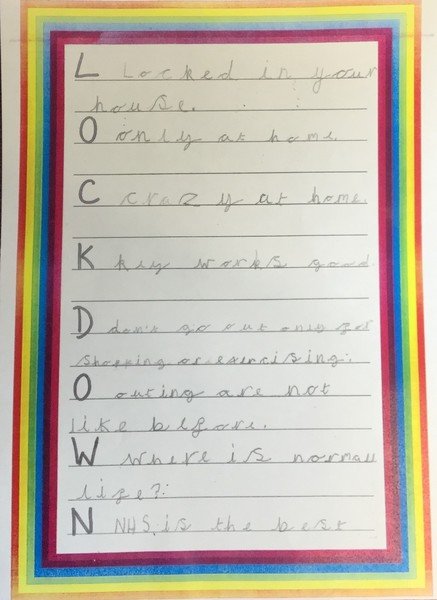 L Locked in your
house.
O only at home.
C crazy at home.
K key works good
D don't go out only for
shopping or exercising.
O outing are not
like before.
W where is normal
life?
N NHS is the best